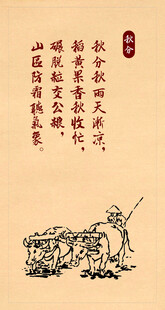 秋分
秋分秋雨天漸凉，
稻黄果香秋收忙，
碾脱粒交公粮，
山区防霜聽氣象。